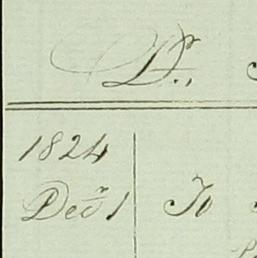 Dr.,
1824
Decr 1 To